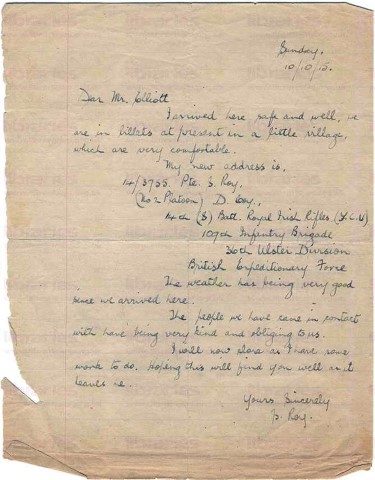 Sunday,
10/10/15.
Dear Mr. Elliott
I arrived here safe and well, we
are in billets at present in a little village,
which are very comfortable.
My new address is,
14/3755. Pte. S. Roy,
(No 2 Platoon) D. Coy.,
14th (S) Batt. Royal Irish Rifles. (Y.C.V.)
107th Infantry Brigade
36th Ulster Division
British Expeditionary Force
The weather has being very good
since we arrived here.
The people we have came in contact
with have being very kind and obliging to us.
I will now close as I have some
work to do. Hoping this will find you well as it
leaves me.
Yours Sincerely
S. Roy.